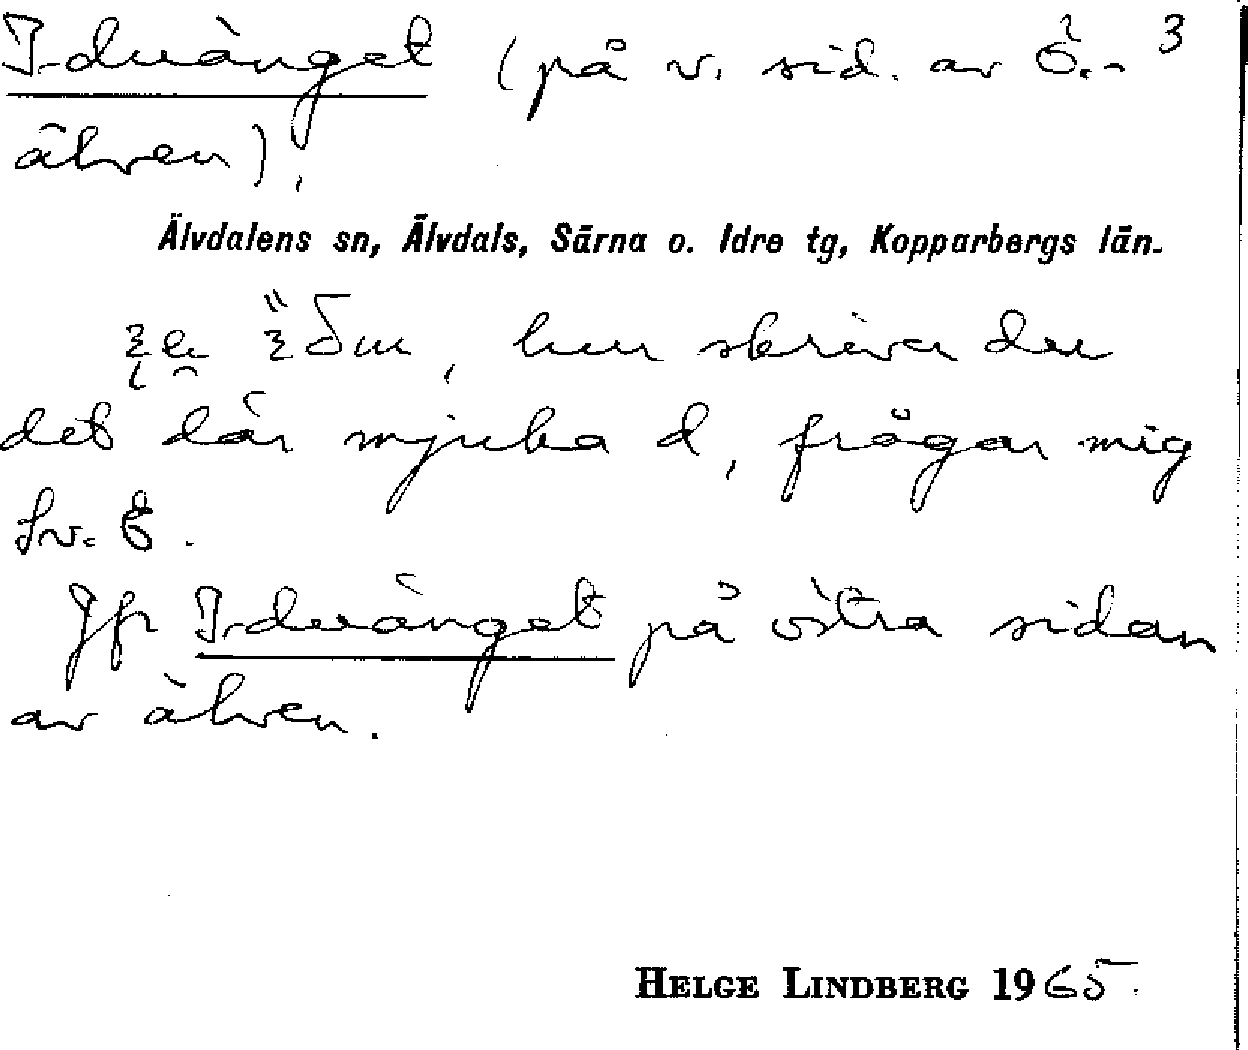 I-duänget (på v. sid. av Ö.- 3
älven).
Älvdalens sn, Älvdals, Särna o. Idre tg, Kopparbergs län.
hur skriver du
det där mjuka d, frågar mig
Sv. E.
Jfr I-duänget på östra sidan
av älven.
HELGE LINDBERG 1965.